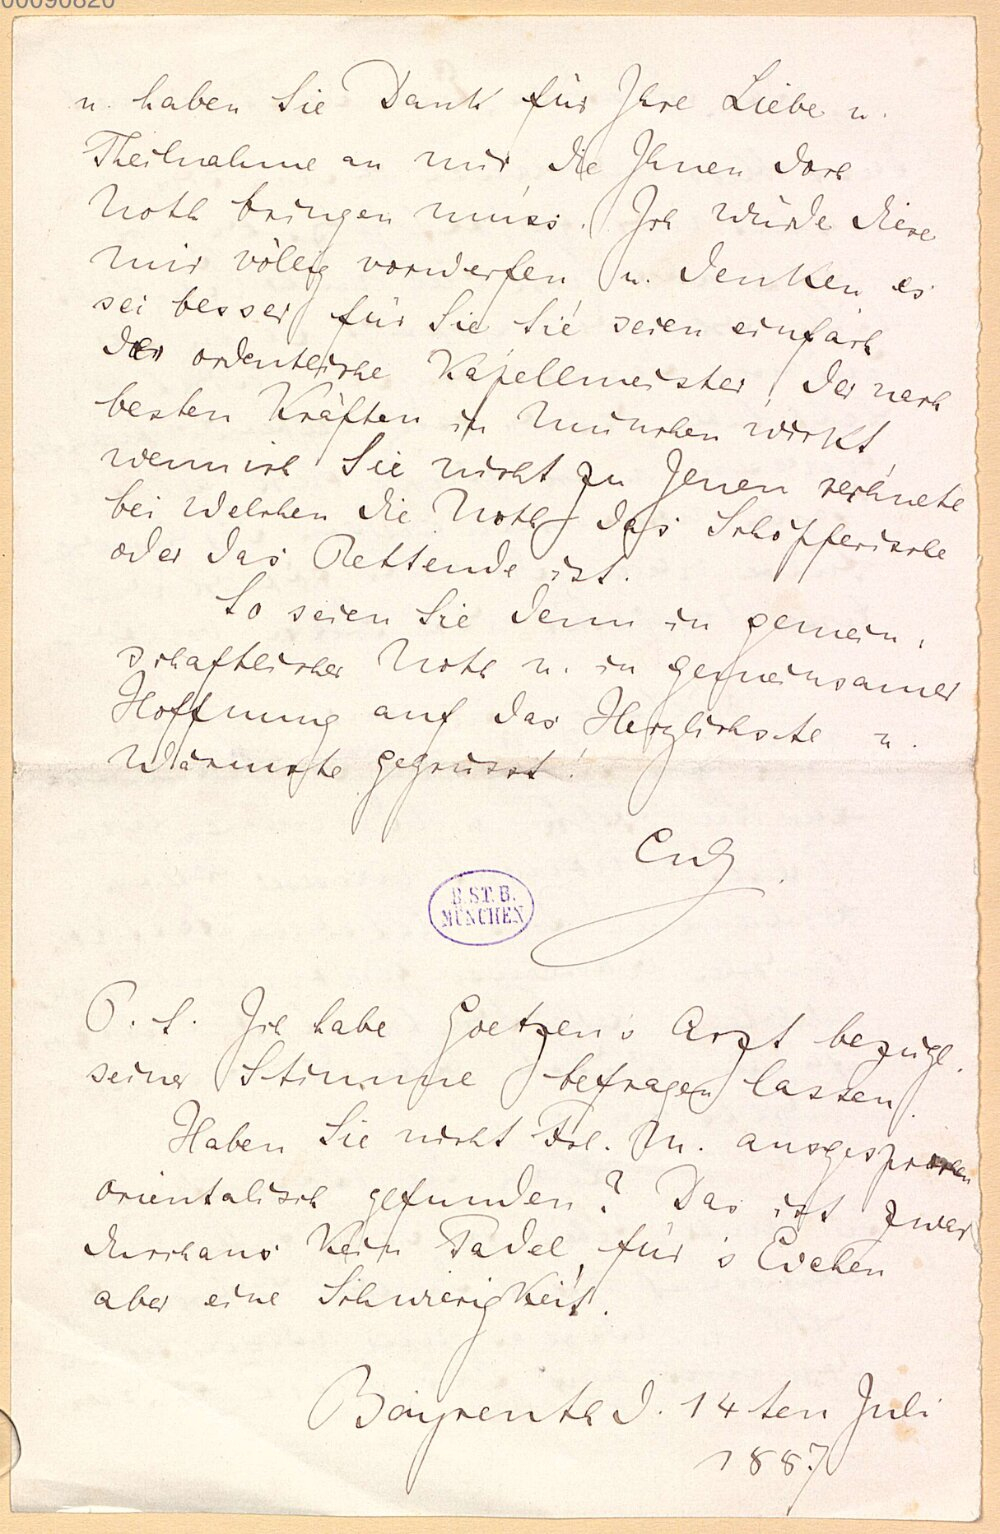 00090820
u. haben Sie Dank für Ihre Liebe u.
Theilnahme an mir, die Ihnen doch
Noth bringen muss. Ich würde diese
mir völlig vorwerfen u. denken es
sei besser für Sie Sie seien einfach
der ordentliche Kapellmeister, der nach
besten Kräften in München wirkt,
wenn ich Sie nicht zu Jenen rechnete
bei Welchen die Noth das Schöpferische
oder das Rettende ist.
So seien Sie denn in gemein-
schaftlicher Noth u. in gemeinsamer
Hoffnung auf das Herzlichste u.
Wärmste gegrüsst!
B.ST.B.
MÜNCHEN
P. S. Ich habe Goetzen's Arzt bezügl.
seiner Stimme befragen lassen.
Haben Sie nicht Frl. M. ausgesprochen
orientalisch gefunden? Das ist zwar
durchaus kein Tadel, für's Evchen
aber eine Schwierigkeit.
Bayreuth d. 14ten Juli
1887